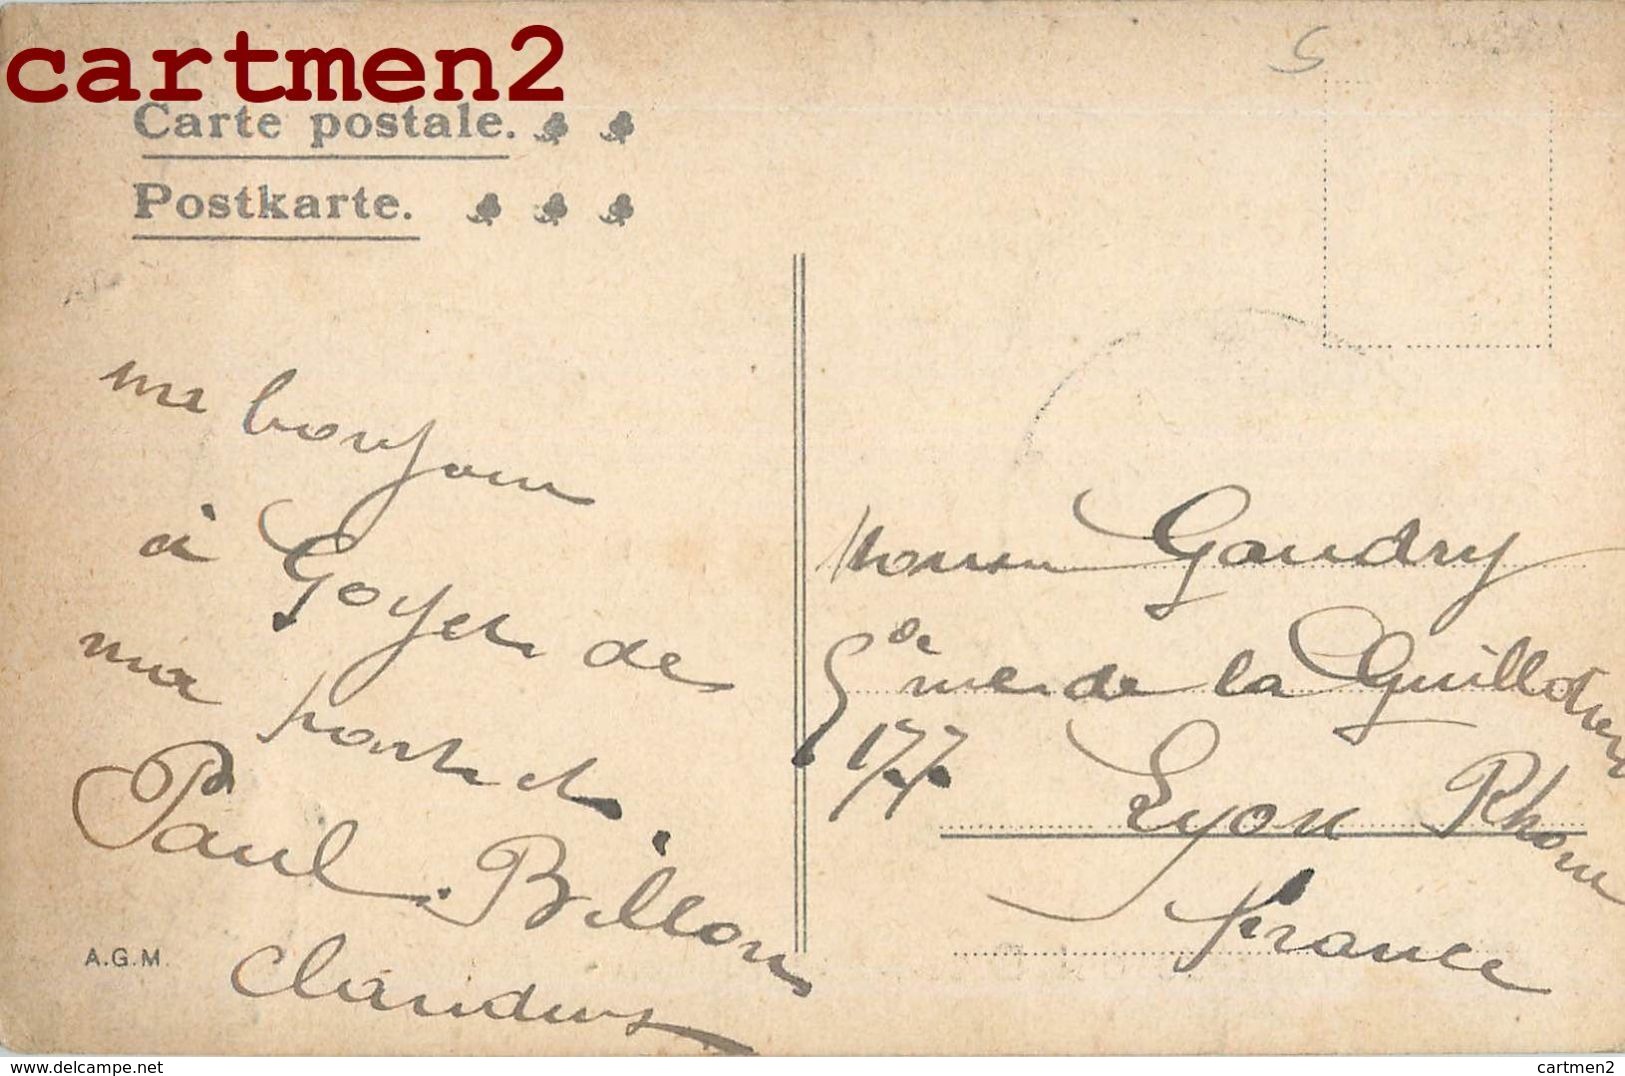 cartmen2
Carte postale.
Postkarte.
bonjour
à Goyet de
ma part et
Paul Billon
Claudius
A.G.M.
5
Monsieur Gaudry
de la Guillotière
177
Lyon Rhone
France
delcampe.net
cartmen2